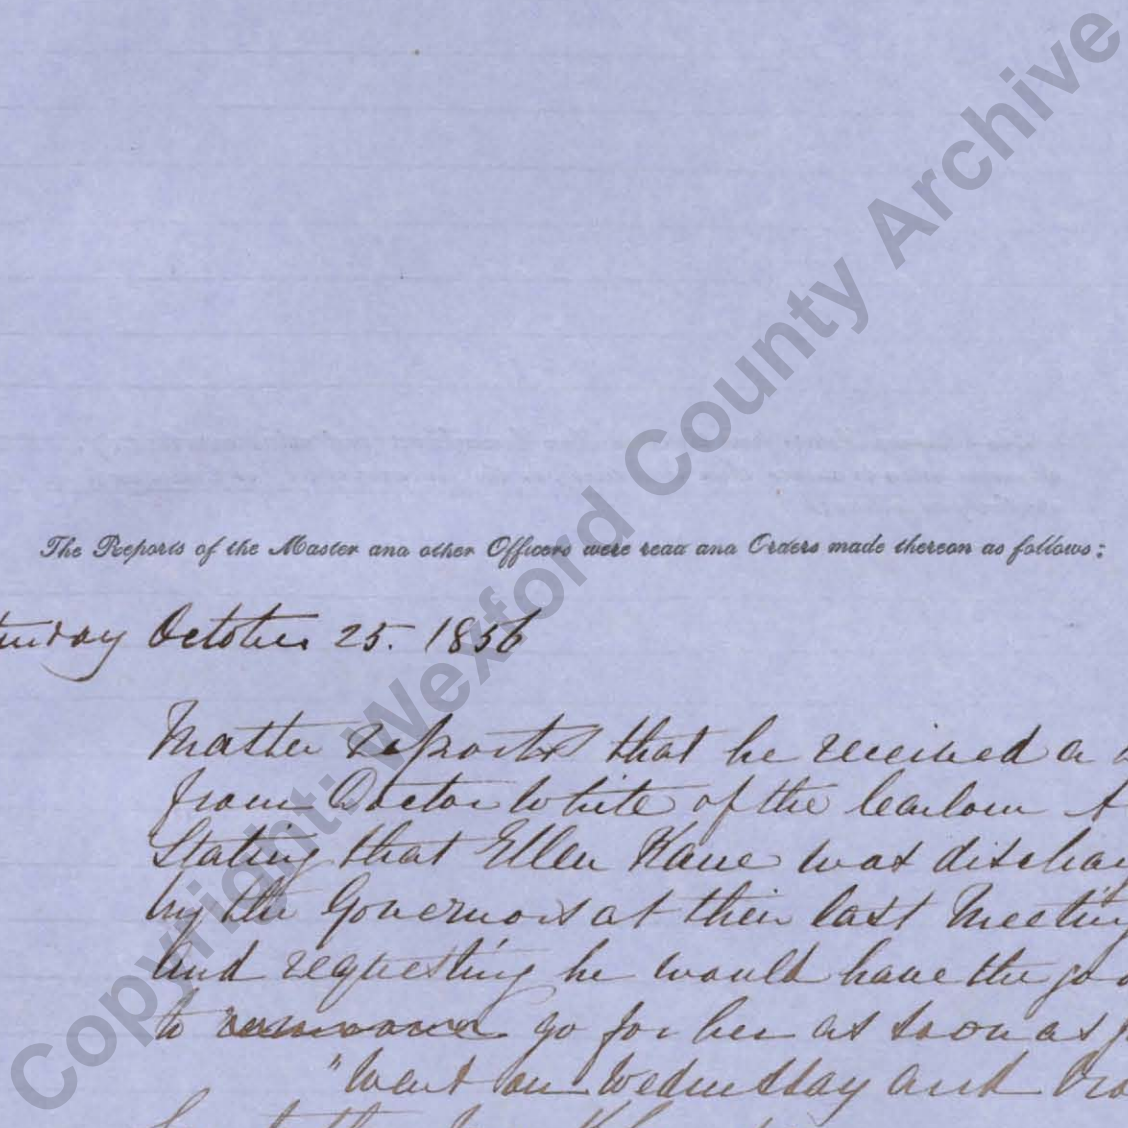 The Reports of the Master and other Officers were read and Orders made thereon as follows:
turday October 25. 1856
Master reports that he received a
from Doctor White of the Carlow A
Stating that Ellen Kane was dischar
by the Governors at their last Meeting
And requesting he would have the goo
to go for her as soon as p
"Went on Wednesday and Bro
Copyright: Wexford County Archive